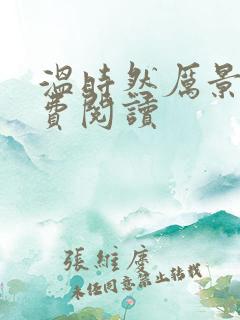 溫時然厲景
費閱讀
張維虔
未经同意禁止转载